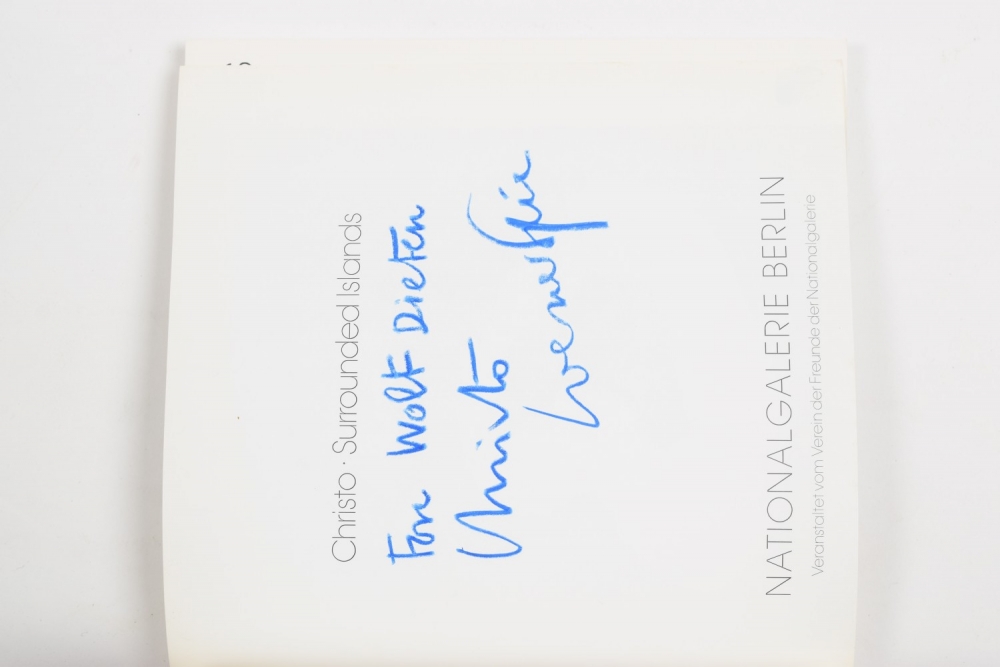 Christo · Surrounded Islands
For Wolf Dieter
Christo
NATIONALGALERIE BERLIN
Veranstaltet vom Verein der Freunde der Nationalgalerie